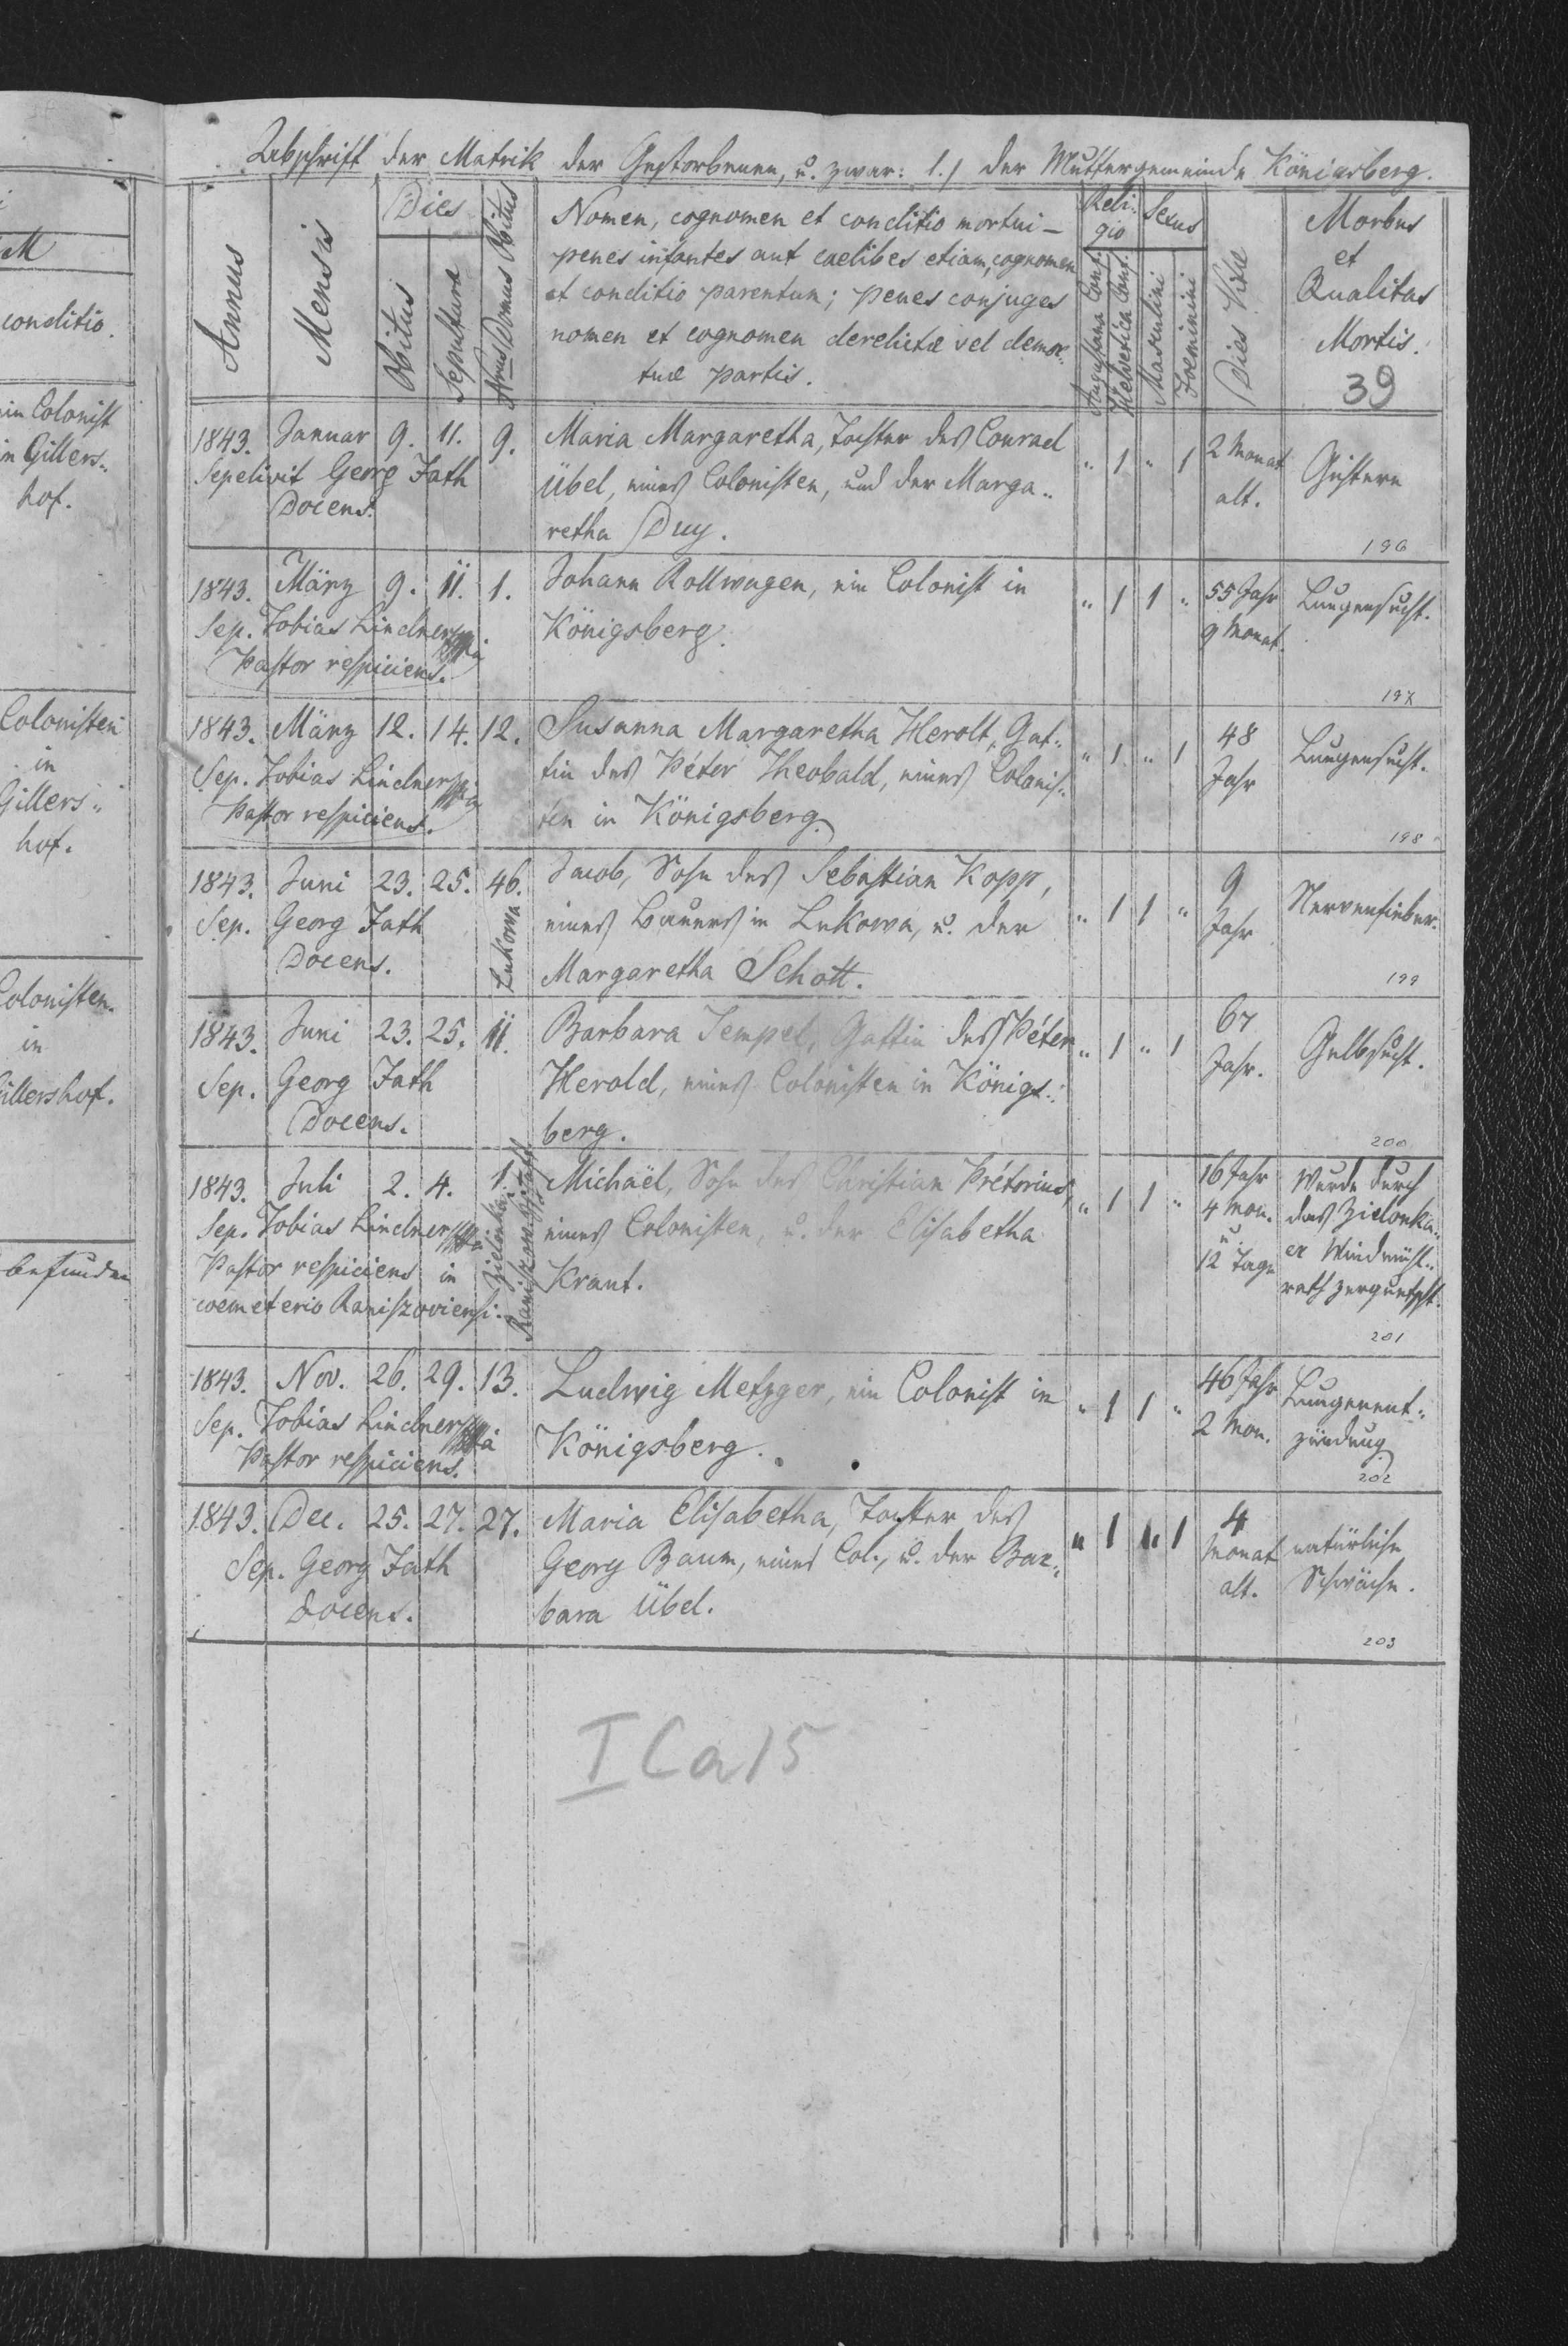 M
conditio.
ein Colonist
in Gillers„
hof.
Colonisten
in
Gillers„
hof.
Colonisten
in
Gillershof.
befunden
Abschrift der Matrik der Gestorbenen, u. zwar: 1./ der Muttergemeinde Königsberg.
Annus
Mensis
Dies
Obitus
Sepulturæ
Nrus Domus Obitus
Nomen, cognomen et conditio mortui –
penes infantes aut caelibes etiam, cognomen
et conditio parentum; penes conjuges
nomen et cognomen derelictæ vel demor„
tuæ partis.
Reli-
gio
Augustana Conf.
Helvetica Conf.
Sexus
Masculini
Foeminini
Dies Vitæ
Morbus
et
Qualitas
Mortis.
39
1843. Januar 9. 11. 9. Maria Margaretha, Tochter des Conrad „ 1 „ 1 2 Monat
Sepelivit Georg Fath Übel, eines Colonisten, und der Marga„ alt.
Docens. retha Duy.
196
1843. März 9. 11. 1. Johann Rollwagen, ein Colonist in „ 1 1 „ 55 Jahr Lungensucht.
Sep. Tobias Lindner Königsberg. 9 Monat.
Pastor respiciens.
197
1843. März 12. 14. 12. Susanna Margaretha Herolt, Gat„ „ 1 „ 1 48 Lungensucht.
Sep. Tobias Lindner tin des Péter Theobald, eines Colonis„ Jahr
Pastor respiciens. ten in Königsberg.
198
1843. Juni 23. 25. 46. Jacob, Sohn des Sebastian Kopp, „ 1 1 „ 9 Nervenfieber.
Sep. Georg Fath Lukowa eines Bauers in Lukowa, u. der Jahr
Docens. Margaretha Schott.
199
1843. Juni 23. 25. 11. Barbara Tempel, Gattin des Péter „ 1 „ 1 67 Gelbsucht.
Sep. Georg Fath Herold, eines Colonisten in Königs„ Jahr.
Docens. berg.
200
1843. Juli 2. 4. 1. Michaël, Sohn des Christian Prétorius, „ 1 1 „ 16 Jahr Wurde durch
Sep. Tobias Lindner eines Colonisten, u. der Elisabetha 4 Mon. das Zielonka„
Pastor respiciens in Zielonka Kraut. u. 12 Tage er Windmühl„
coemeterio Raniszoviensi. rath zerquetscht.
201
1843. Nov. 26. 29. 13. Ludwig Metzger, ein Colonist in „ 1 1 „ 46 Jahr Lungenent„
Sep. Tobias Lindner Königsberg. 2 Mon. zündung
Pastor respiciens.
202
1843. Dec. 25. 27. 27. Maria Elisabetha, Tochter des „ 1 „ 1 4
Sep. Georg Fath Georg Baum, eines Col., u. der Bar„ Monat natürliche
Docens. bara Übel. alt. Schwäche.
203
I Ca15